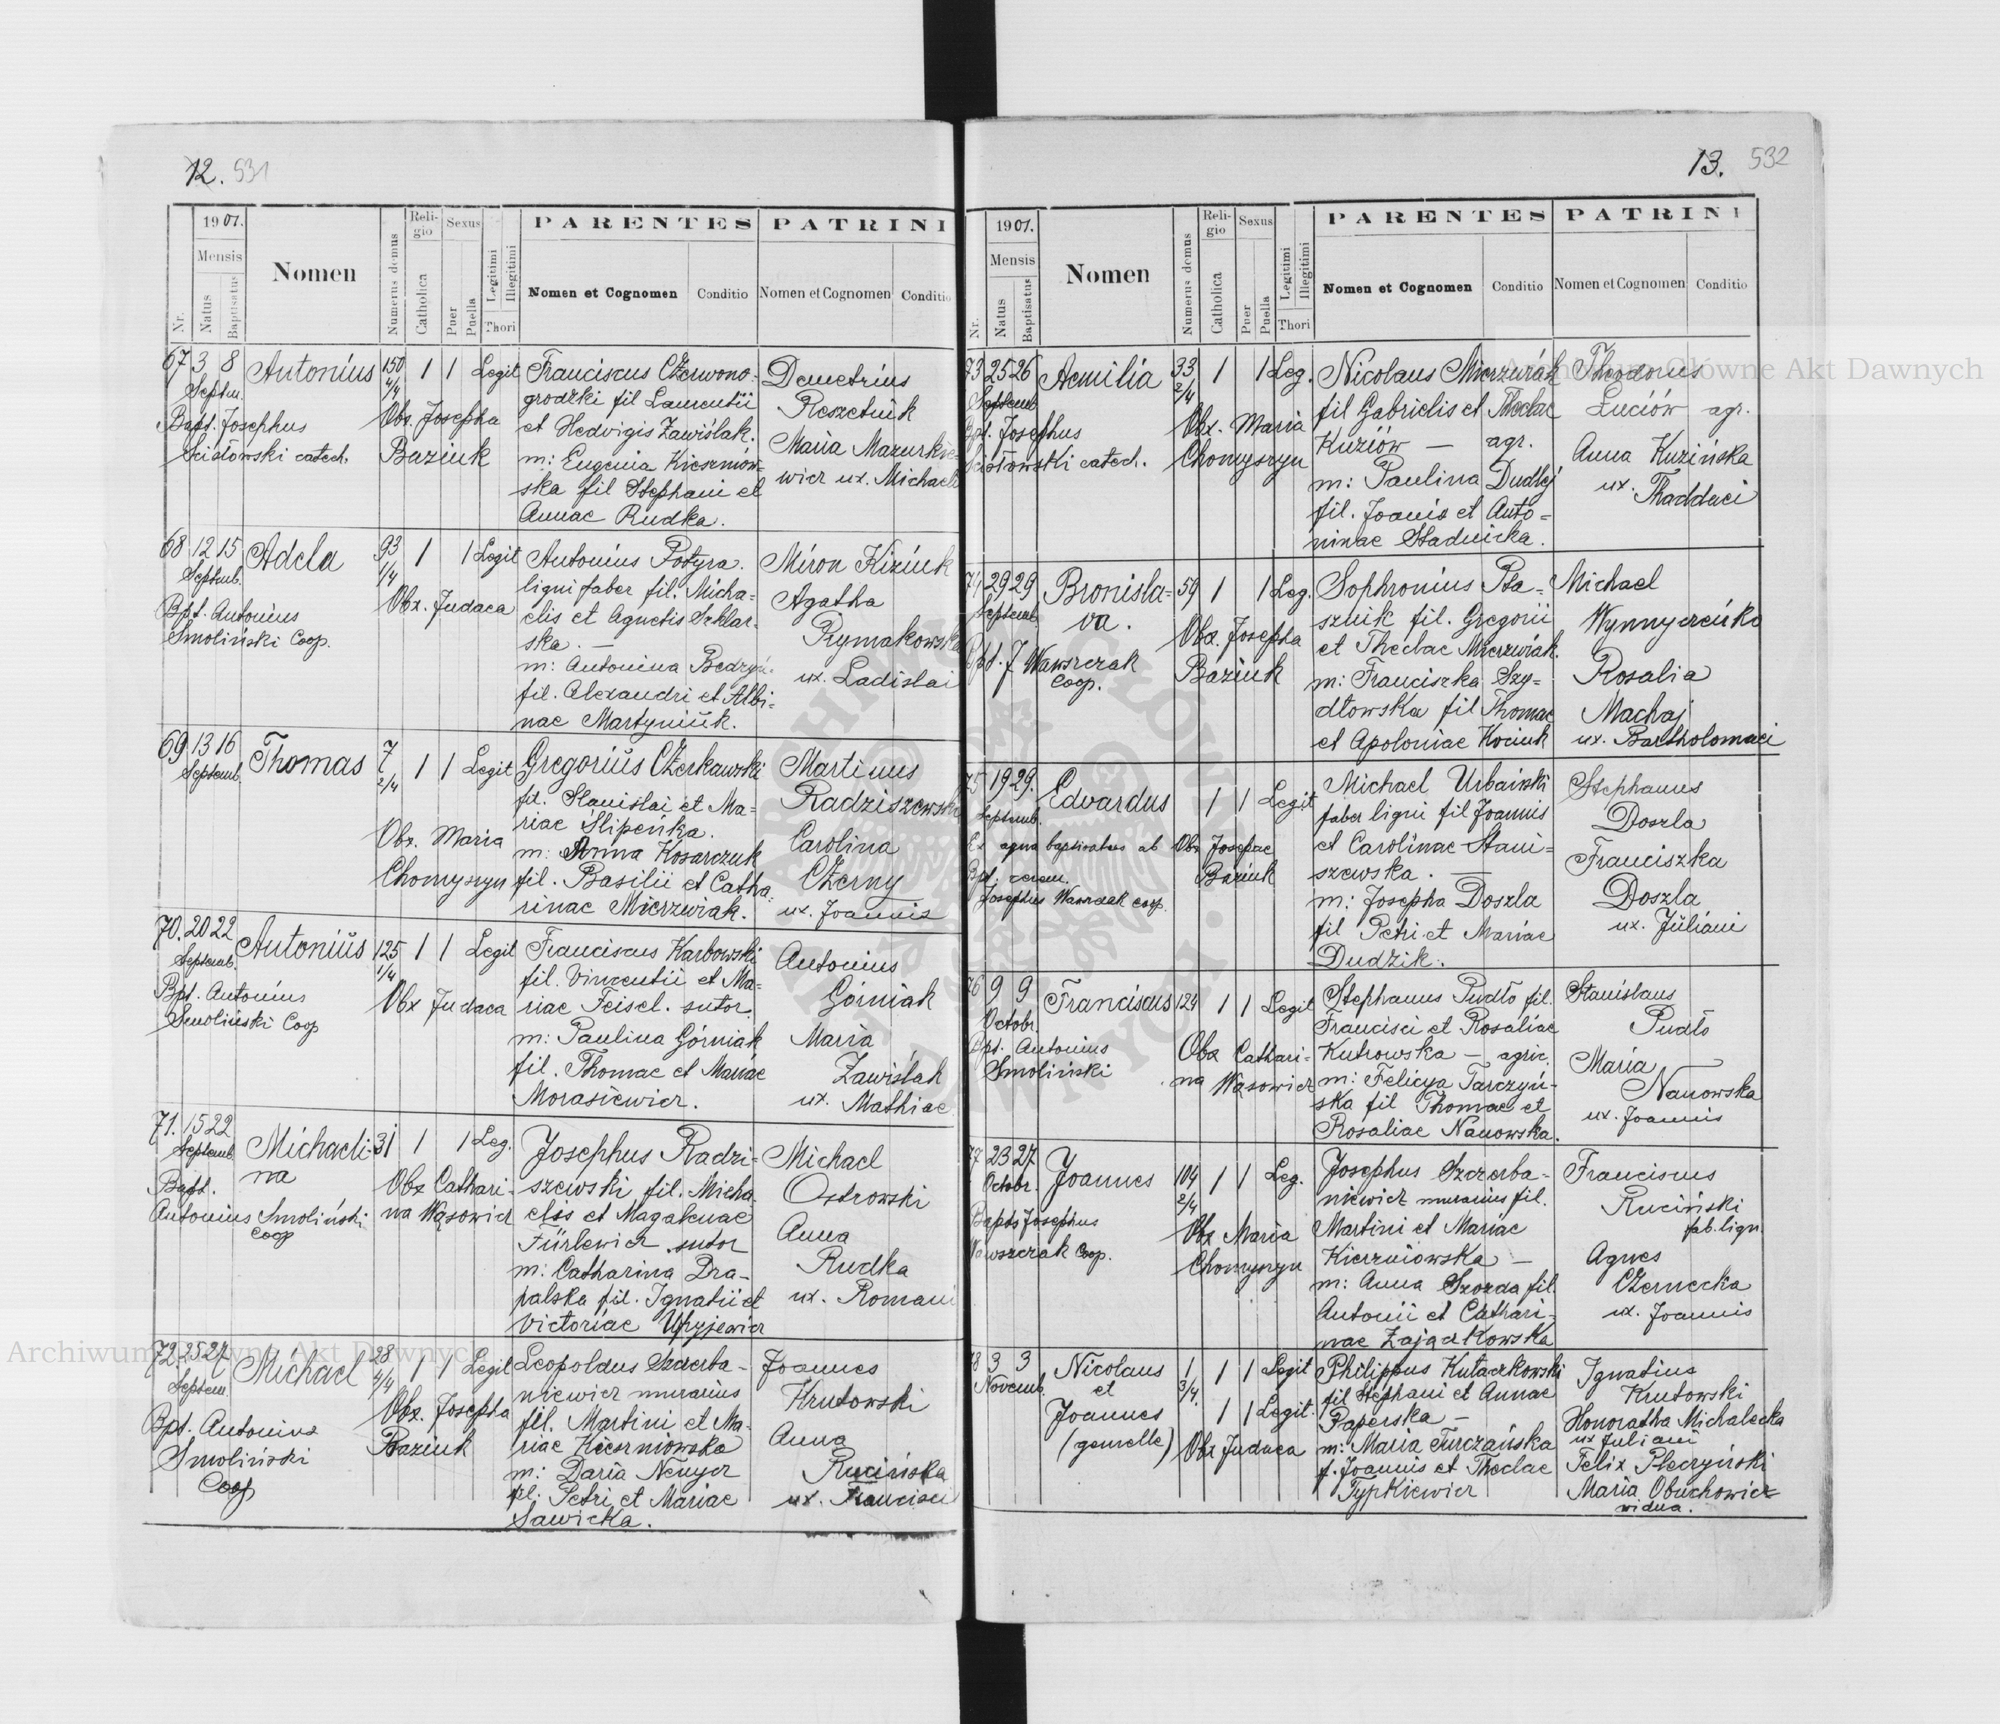 12. 531
1901.
Mensis
Nr.
Natus
Baptisatus
Nomen
Numerus domus
Religio
Catholica
Sexus
Puer
Puella
Legitimi
Illegitimi
Thori
PARENTES
Nomen et Cognomen
Conditio
PATRINI
Nomen et Cognomen
Conditio
67 3 8 Antonius 150 1 1 Legit
4/4
Septem.
Bapt. Josephus
Ścisłowski catech.
Obx. Josepha
Baziuk
Franciscus Czerwono-
grodzki fil Laurentii
et Hedvigis Zawiślak.
m: Eugenia Kieszniow-
ska fil Stephani et
Annae Rudka.
Demetrius
Reszetuk
Maria Mazurkie-
wicz ux. Michaeli
68 12 15 Adela 93 1 1 Legit
1/4
Septemb.
Bpt. Antonius
Smoliński Coop.
Obx. Judaca
Antonius Potyra.
ligni faber fil. Micha-
elis et Agnetis Szklar-
ska. —
m: Antonina Bedzyń-
fil. Alexandri et Albi-
nae Martyniuk.
Miron Kiziuk
Agatha
Rymakowska
ux. Ladislai
69 13 16 Thomas 7 1 1 Legit
2/4
Septemb.
Obx. Maria
Chomyszyn
Gregorius Czerkawski
fil. Stanislai et Ma-
riae Ślipeńka.
m: Anna Kosarczuk
fil. Basilii et Catha-
rinae Mierzwiak.
Martinus
Radziszewski
Carolina
Czerny
ux. Joannis
70. 20 22 Antonius 125 1 1 Legit
1/4
Septemb.
Bpt. Antonius
Smoliński Coop
Obx Judaca
Franciscus Karbowski
fil. Vincentii et Ma-
riae Feisel. sutor
m: Paulina Górniak
fil. Thomae et Mariae
Morasiewicz.
Antonius
Górniak
Maria
Zawiślak
ux. Mathiae
71. 15 22 Michaeli- 31 1 1 Leg.
na
Septemb.
Bapt.
Antonius Smoliński
Coop
Obx Cathari-
na Wąsowicz
Josephus Radzi-
szewski fil. Micha-
elis et Magalenae
Fürlewicz sutor
m: Catharina Dra-
palska fil. Ignatii et
Victoriae Upyjewicz
Michael
Ostrowski
Anna
Rudka
ux. Romani
72. 25 27 Michael 28 1 1 Legit
4/4
Septem.
Bpt. Antonius
Smoliński
Coop
Obx. Josepha
Baziuk
Leopoldus Szczerba-
niewicz murarius
fil. Martini et Ma-
riae Kierzniowska
m: Daria Nenycz
fil. Petri et Mariae
Sawicka.
Joannes
Krutowski
Anna
Rucińska
ux. Francisci
13. 532
1901.
Mensis
Nr.
Natus
Baptisatus
Nomen
Numerus domus
Religio
Catholica
Sexus
Puer
Puella
Legitimi
Illegitimi
Thori
PARENTES
Nomen et Cognomen
Conditio
PATRINI
Nomen et Cognomen
Conditio
73 25 26 Aemilia 33 1 1 Leg.
2/4
Septemb
Bpt. Josephus
Ścisłowski catech.
Obx. Maria
Chomyszyn
Nicolaus Mierzwiak
fil Gabrielis et Theclae
Kuziów — agr.
m: Paulina Dudlej
fil. Joanis et Anto-
ninae Stadnicka.
Theodorus
Luciów agr.
Anna Kuzińska
ux. Thaddaei
74 29 29 Bronisla- 59 1 1 Leg.
va.
Septemb.
Bpt. J Wawrzczak
Coop.
Obx. Josepha
Baziuk
Sophronius Pta-
sznik fil. Gregorii
et Theclae Mierzwiak.
m: Franciszka Szy-
dłowska fil Thomae
et Apoloniae Kociuk
Michael
Wynnyczeńko
Rosalia
Machaj
ux. Bartholomaei
75 19 29. Edvardus 1 1 Legit
Septemb.
Ex aqua baptisatus ab Obx Josepae
Baziuk
Bpt. cerem.
Josephus Wawrzczak coop.
Michael Urbański
faber ligni fil Joannis
et Carolinae Stani-
szewska. —
m: Josepha Doszla
fil Petri et Mariae
Dudzik.
Stephanus
Doszla
Franciszka
Doszla
ux. Juliani
76 9 9 Franciscus 124 1 1 Legit
Octobr.
Bpt. Antonius
Smoliński
Obx Cathari-
na Wąsowicz
Stephanus Pudło fil.
Francisci et Rosaliae
Kutrowska — agric.
m: Felicya Tarczyń-
ska fil Thomae et
Rosaliae Nanowska.
Stanislaus
Pudło
Maria
Nanowska
ux. Joannis
77 23 27 Joannes 104 1 1 Leg.
2/4
Octobr.
Bapts Josephus
Wawszczak Coop.
Obx Maria
Chomyszyn
Josephus Szczerba-
niewicz murarius fil.
Martini et Mariae
Kierzniowska —
m: Anna Szozda fil.
Antonii et Cathari-
nae Zajączkowska
Franciscus
Ruciński
fab. lign.
Agnes
Czernecka
ux. Joannis
78 3 3 Nicolaus 1 1 1 Legit
3/4
Novemb.
et
Joannes 1 1 Legit.
(gemelle)
Obx Judaca
Philippus Kutaczkowski
fil Stephani et Annae
Paperska —
m: Maria Turczańska
f. Joannis et Theclae
Typkiewicz
Ignatius
Krutowski
Honoratha Michalecka
ux Juliani
Felix Pleczyński
Maria Obuchowicz
vidua.
Archiwum Główne Akt Dawnych
Archiwum Główne Akt Dawnych